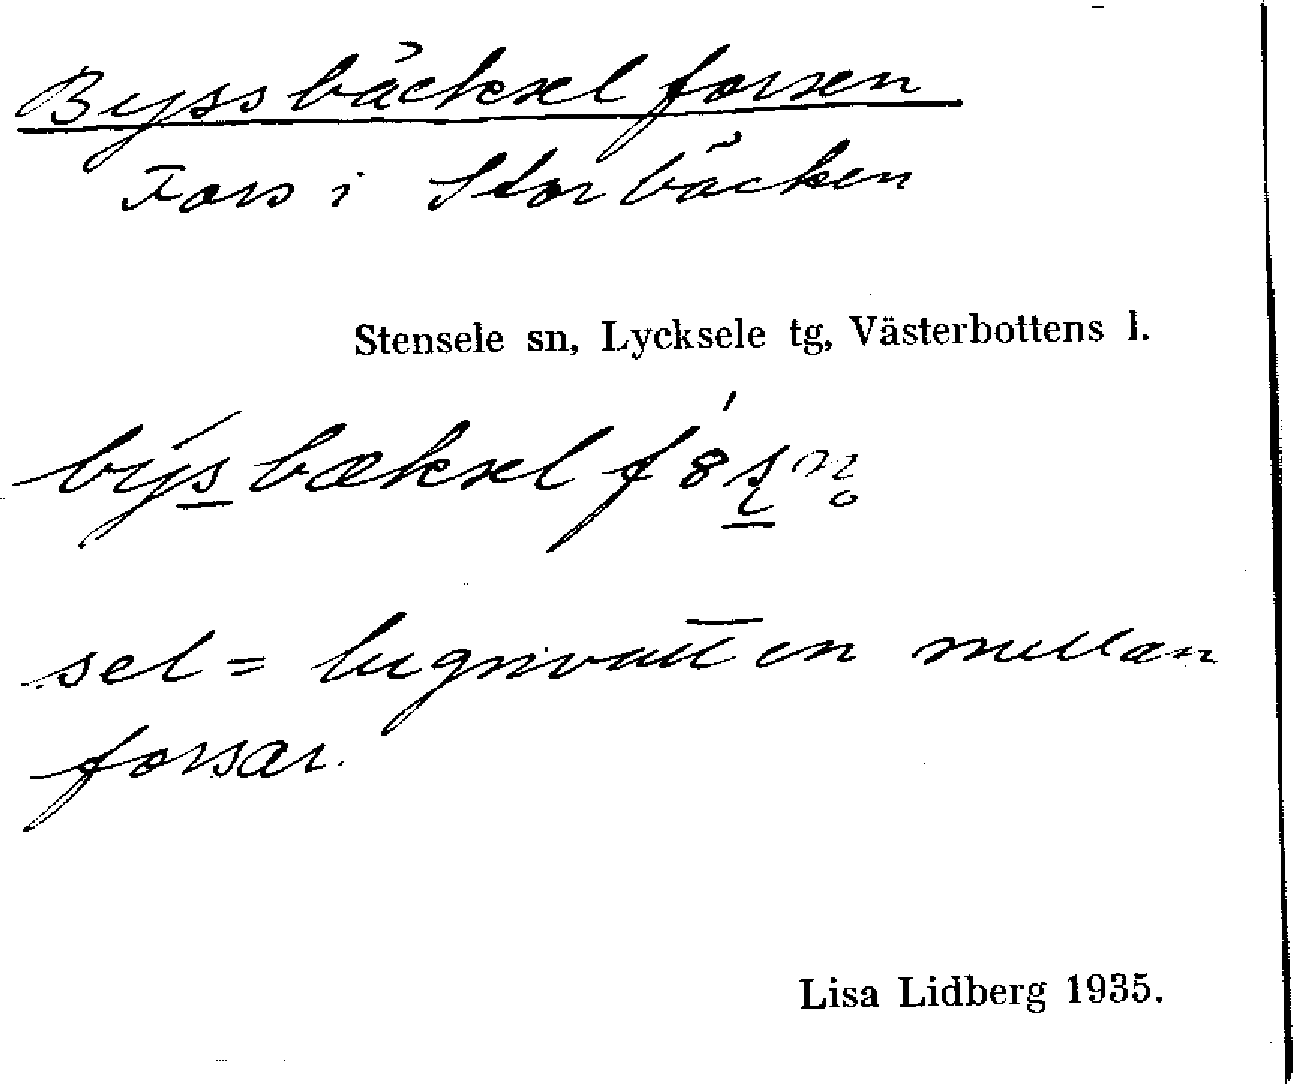 Byssbäckselforsen
Fors i Storbäcken
Stensele sn, Lycksele tg, Västerbottens l.
býsbækselfȣ́ʂn̥
sel = lugnvatten mellan
forsar.
Lisa Lidberg 1935.